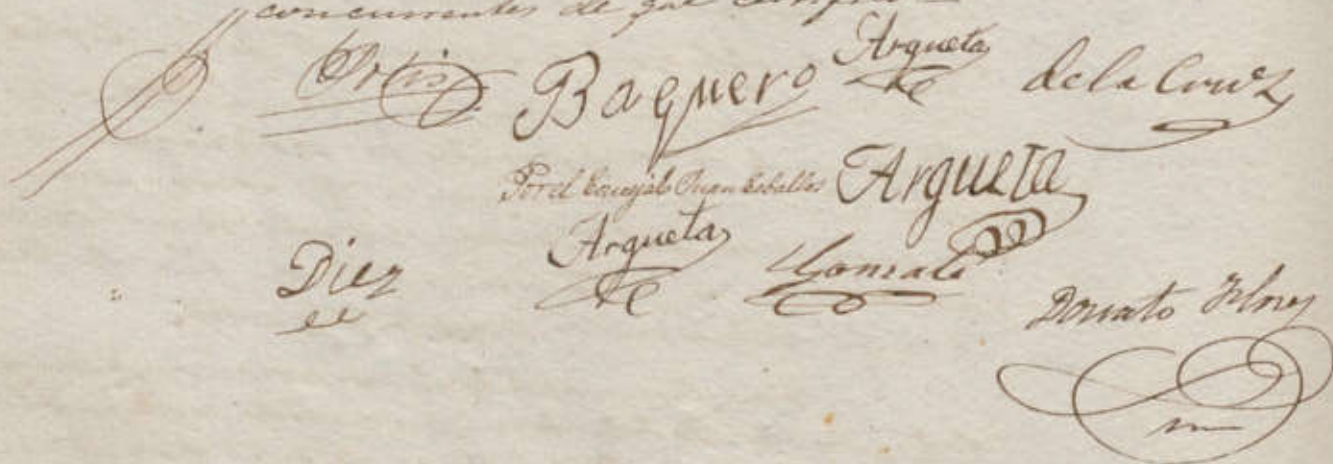 concurrentes de que certifico
Ortiz Baquero Argueta de la Cruz
Por el Concejal Juan Ceballos Argueta
Diez Argueta Gonzalo
Donato